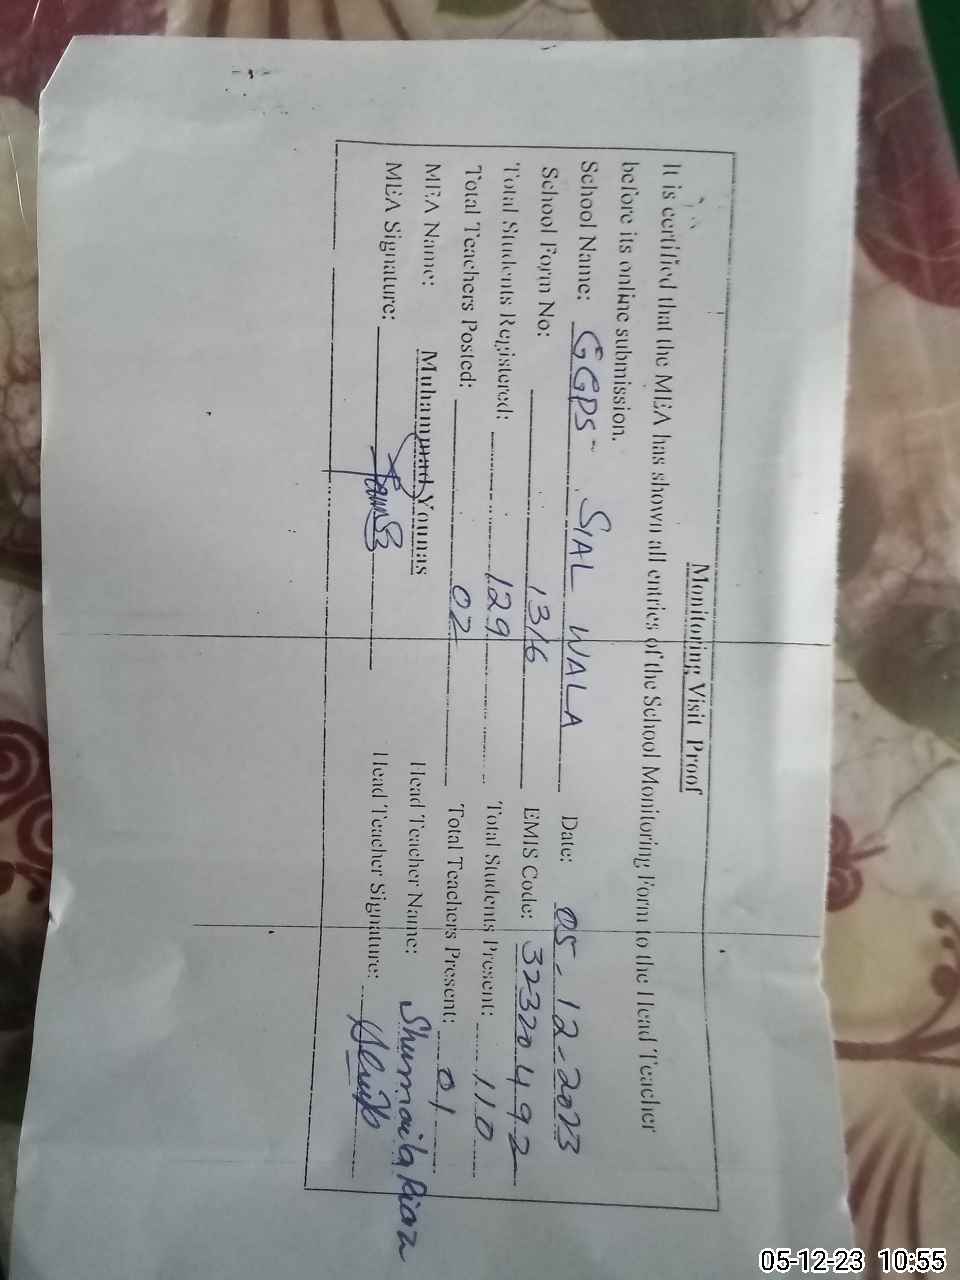 Monitoring Visit Proof
It is certified that the MEA has shown all entries of the School Monitoring Form to the Head Teacher
before its online submission.
School Name: GGPS SIAL WALA Date: 05-12-2023
School Form No: 1316 EMIS Code: 32320492
Total Students Registered: 129 Total Students Present: 110
Total Teachers Posted: 02 Total Teachers Present: 01
MEA Name: Muhammad Younas Head Teacher Name: Shumaila Riaz
MEA Signature: Head Teacher Signature:
05-12-23 10:55